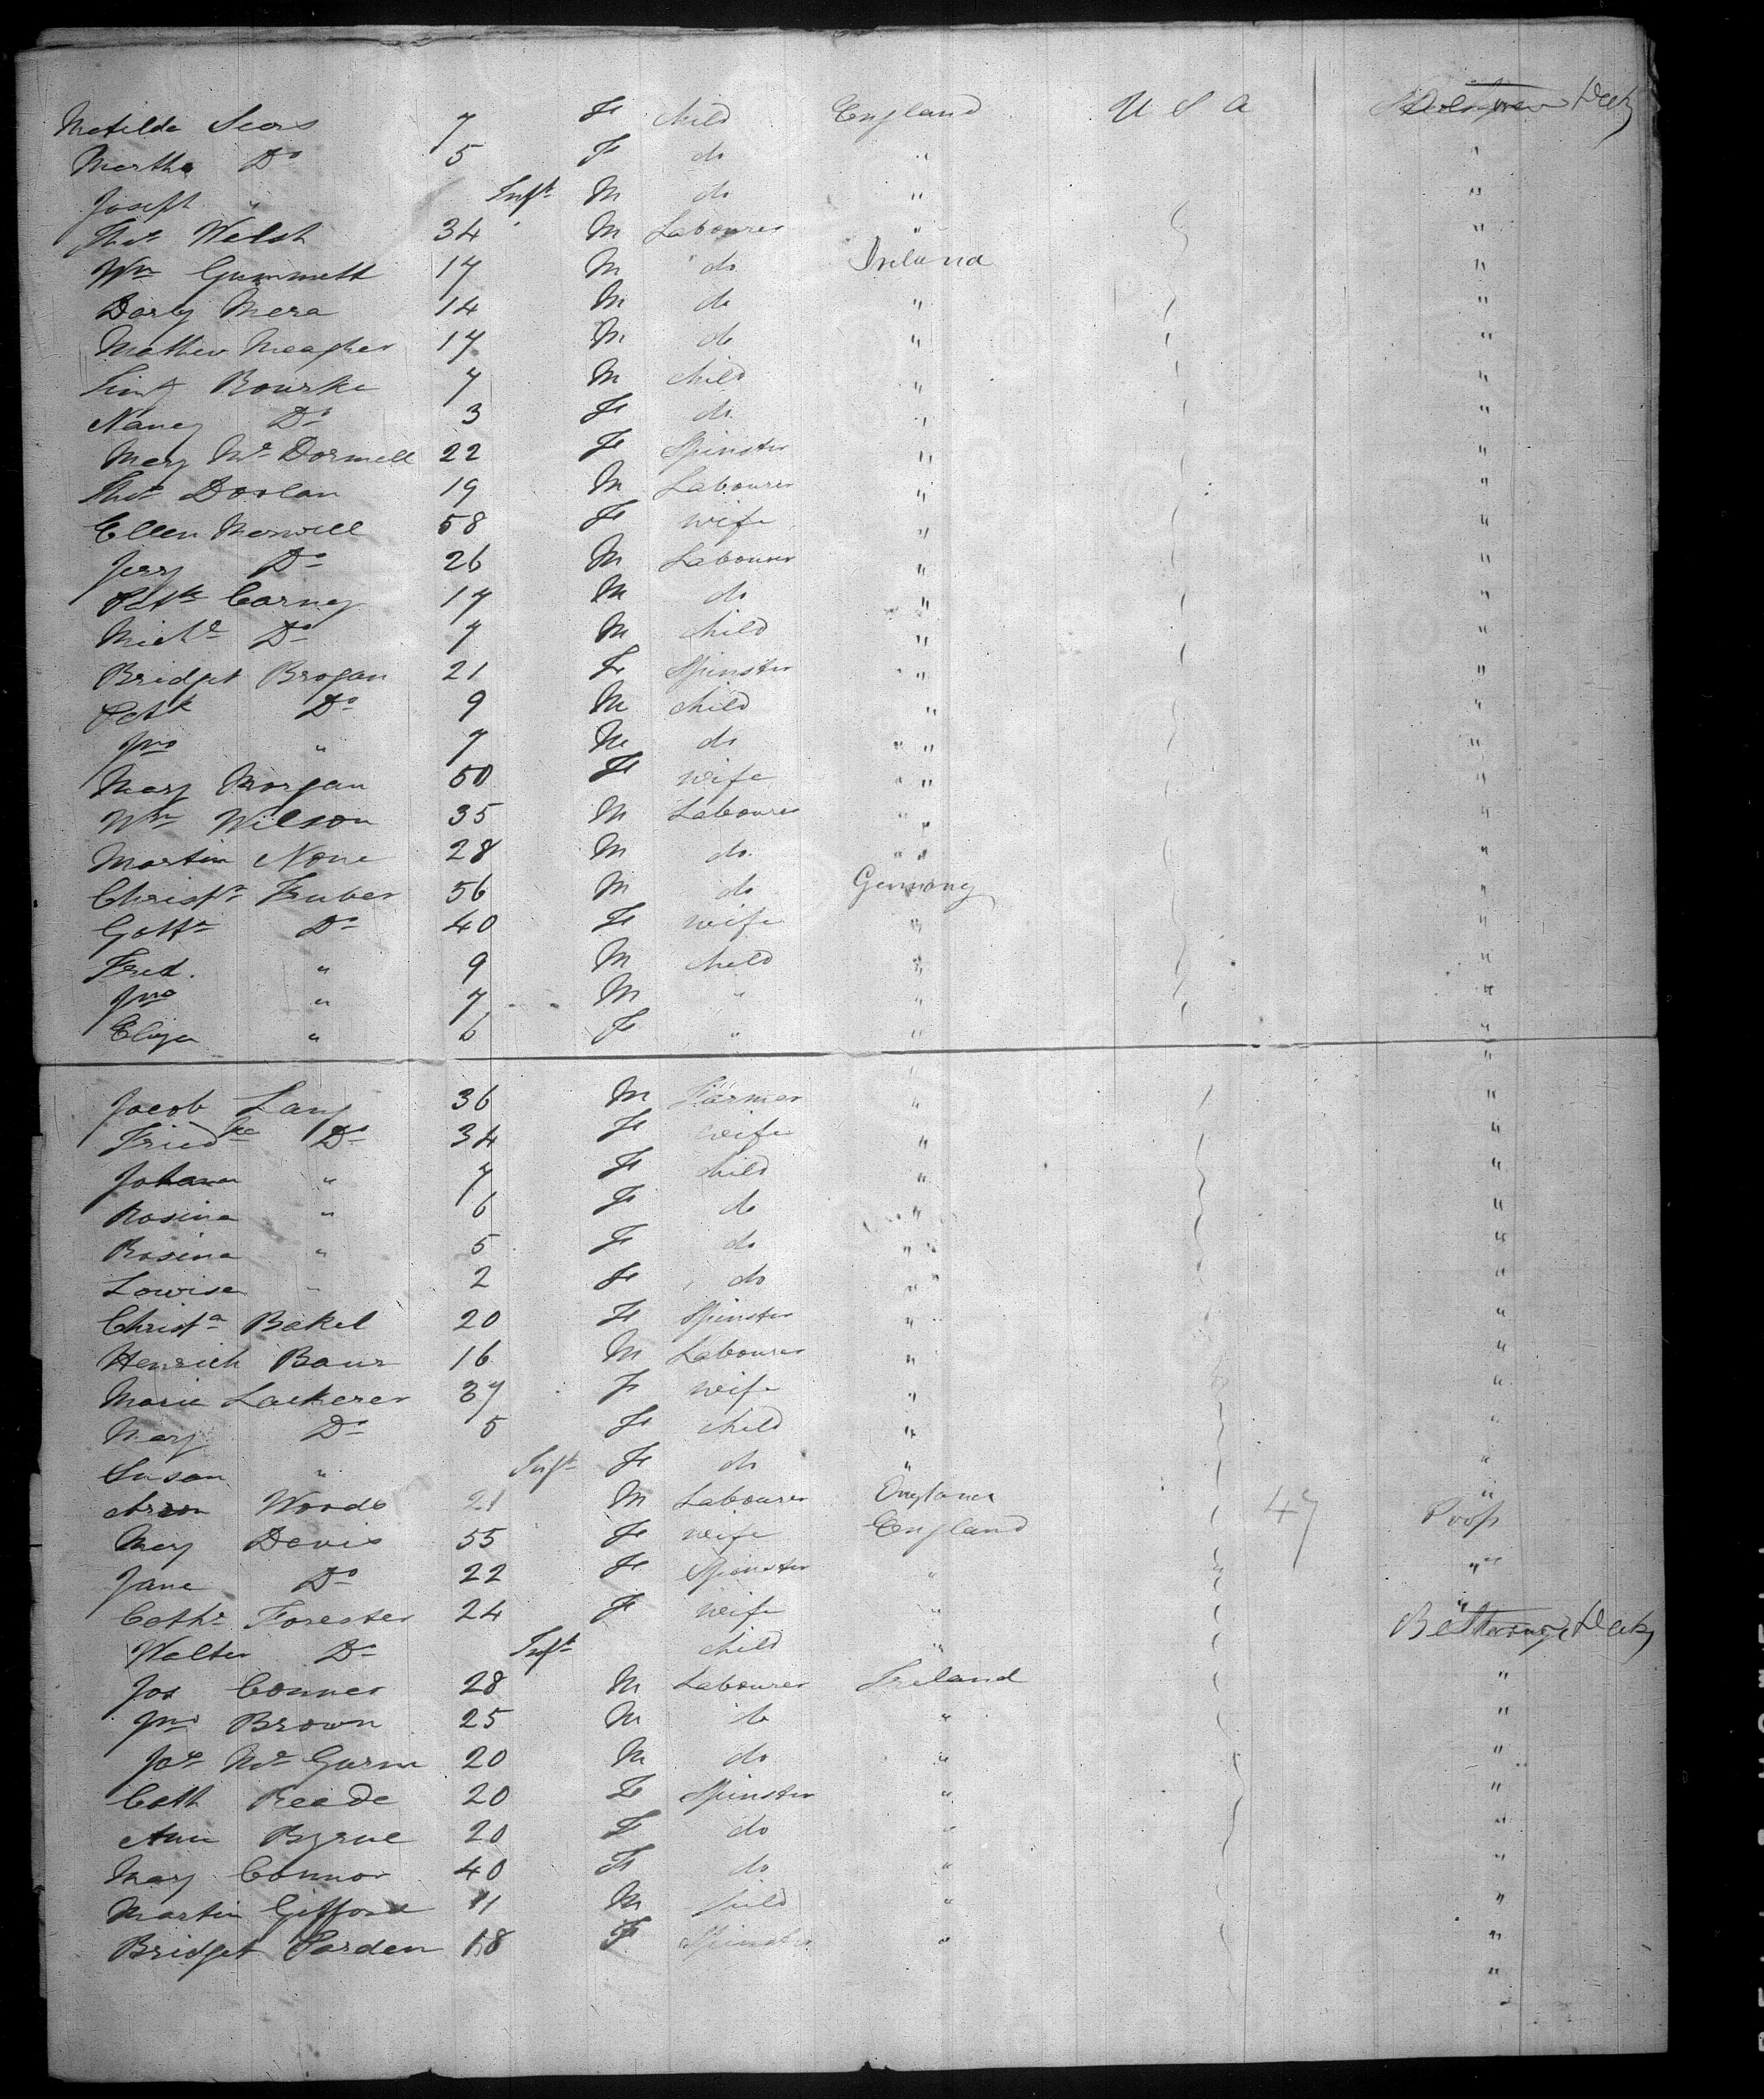 Matilda Sears 7 F child England U S A Deck
Martha Do 5 F do "
Joseph " Inft M do " "
Thos Welsh 34 M Labourer " "
Wm Gummett 17 M do Ireland "
Darby Mera 14 M do " "
Mathew Meagher 17 M do " "
Timy Bourke 7 M child " "
Nancy Do 3 F do " "
Mary Mc Dormell 22 F Spinster " "
Thos Doolan 19 M Labourer " "
Ellen Merwill 58 F wife " "
Jerry Do 26 M Labourer " "
Patk Carney 17 M do " "
Michl Do 7 M child " "
Bridget Brogan 21 F Spinster " "
Patk Do 9 M child " "
Jno " 7 M do " "
Mary Morgan 50 F wife " "
Wm Wilson 35 M Labourer " "
Martin None 28 M do " "
Christn Truber 56 M do Germany "
Gottn Do 40 F wife " "
Fred. " 9 M child " "
Jno " 7 M " " "
Eliza " 6 F " " "
"
Jacob Lang 36 M Farmer " "
Friedke Do 34 F wife " "
Johana " 7 F child " "
Rosina " 6 F do " "
Rosina " 5 F do " "
Lowisa " 2 F do " "
Christa Bakel 20 F Spinster " "
Henrich Baur 16 M Labourer " "
Marie Lackerer 37 F wife " "
Mary Do 5 F child " "
Susan " Inft F do " "
Aron Woods 21 M Labourer England "
Mary Davis 55 F wife England 47 Poop
Jane Do 22 F Spinster " "
Cathe Forester 24 F wife " "
Walter Do Inft child " Deck
Jos Conner 28 M Labourer Ireland "
Jno Brown 25 M do " "
Jos Mc Gurn 20 M do " "
Cath Reade 20 F Spinster " "
Ann Byrne 20 F do " "
Mary Connor 40 F do " "
Martin Gifford 11 M child " "
Bridget Parden 18 F Spinster " "
"